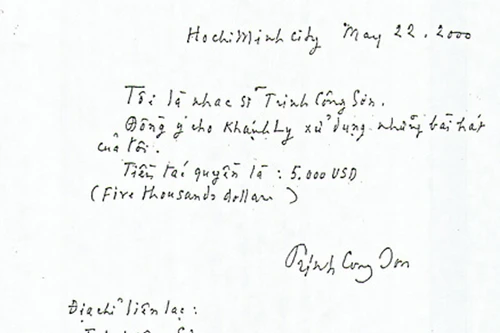 Hochiminh city May 22. 2000
Tôi là nhạc sĩ Trịnh Công Sơn.
Đồng ý cho Khánh Ly xử dụng những bài hát
của tôi.
Tiền tác quyền là : 5.000 USD
(Five thousands dollars)
Trịnh Cong Son
Địa chỉ liên lạc :